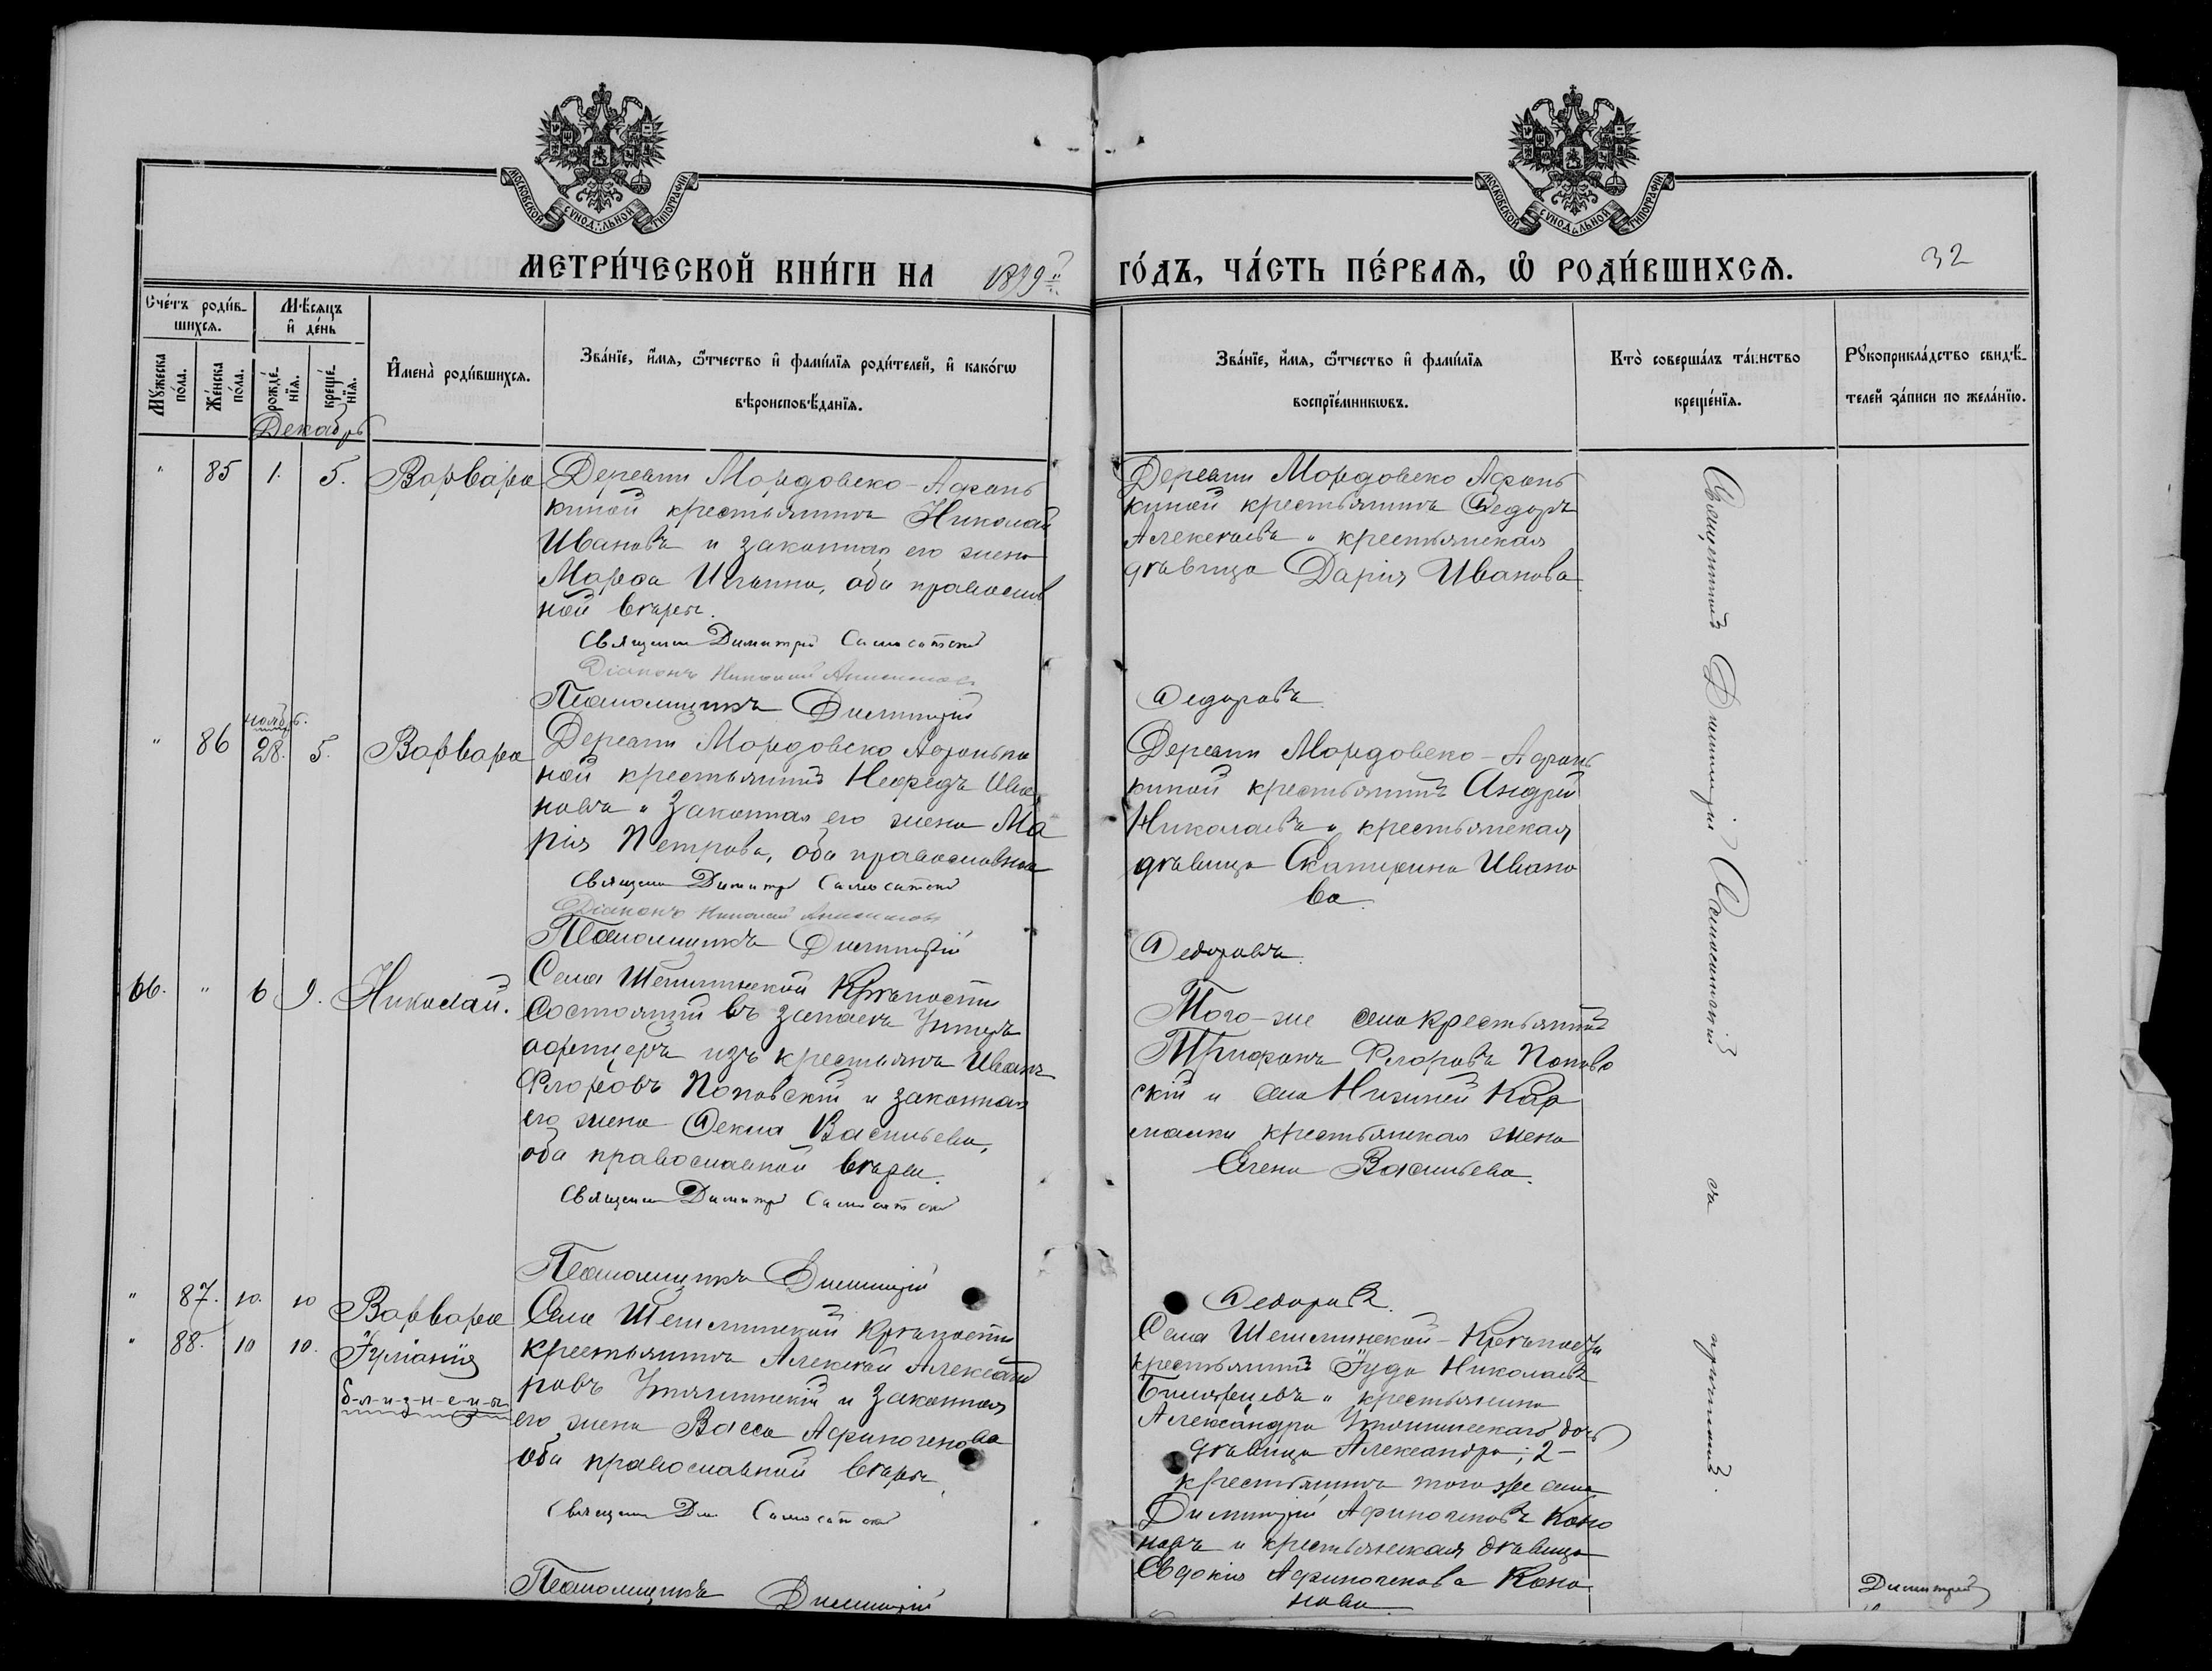 МОСКОВСКОЙ СѴНОДАЛЬНОЙ ТИПОГРАФІИ
МОСКОВСКОЙ СѴНОДАЛЬНОЙ ТИПОГРАФІИ
МЕТРИ́ЧЕСКОЙ КНИ́ГИ НА 1899й
ГО́ДЪ, ЧА́СТЬ ПЕ́РВАЯ, Ѡ РОДИ́ВШИХСЯ.
32
Сче́тъ роди́в-
шихся.
Мѣ́сяцъ
и҆ де́нь
Мꙋжеска по́ла.
Же́нска по́ла.
рожде́-
нїя.
креще́-
нїя.
И҆мена̀ роди́вшихся.
Зва́нїе, и҆́мя, ѻ҆́тчество и҆ фами́лїя роди́телей, и҆ како́гѡ
вѣроисповѣ́данїя.
Зва́нїе, и҆́мя, ѻ҆́тчество и҆ фами́лїя
воспрїе́мникѡвъ.
Кто̀ соверша́лъ та́инство
креще́нїя.
Рꙋкоприкла́дство свидѣ́-
телей за́писи по жела́нїю.
Декабрь
" 85 1. 5. Варвара
Деревни Мордовско-Афонь
киной крестьянинъ Николай
Ивановъ и законная его жена
Марфа Ильина, оба православ
ной вѣры.
Священникъ Димитрій Самосатскій
Діаконъ Николай
Псаломщикъ Димитрій
Деревни Мордовско Афонь
киной крестьянинъ Федоръ
Алексѣевъ и крестьянская
дѣвица Дарія Иванова
Федоровъ
" 86 ноябрь. 28. 5. Варвара
Деревни Мордовско Афоньки
ной крестьянинъ Нефедъ Ива
новъ и законная его жена Ма
рія Петрова, оба православной
Священникъ Димитрій Самосатскій
Діаконъ Николай
Псаломщикъ Димитрій
Деревни Мордовско-Афонь
киной крестьянинъ Андрей
Николаевъ и крестьянская
дѣвица Екатерина Ивано
ва.
Федоровъ.
66. " 6 9. Николай.
Села Шешминской Крѣпости
состоящій въ запасѣ Унтеръ
офицеръ изъ крестьянъ Иванъ
Флоровъ Поповскій и законная
его жена Фекла Васильева,
оба православной вѣры.
Священникъ Димитрій Самосатскій
Псаломщикъ Димитрій
Того-же села крестьянинъ
Трифонъ Флоровъ Попов
скій и села Нижней Кар
малки крестьянская жена
Елена Васильева.
Федоровъ.
" 87. 10. 10 Варвара
" 88. 10 10. Іуліанія
б-л-и-з-н-е-ц-ы
Села Шешминской Крѣпости
крестьянинъ Алексѣй Александ
ровъ и законная
его жена Васса Афиногенова
оба православной вѣры.
Священникъ Дим Самосатскій
Псаломщикъ Димитрій
Села Шешминской-Крѣпости
крестьянинъ Іуда Николаевъ
и крестьянина
Александра дочь
дѣвица Александра; 2-
крестьянинъ того же села
Димитрій Афиногеновъ Коно
новъ и крестьянская дѣвица
Евдокія Афиногенова Коно
нова.
Священникъ Димитрій Самосатскій съ причтомъ.
Димитрій